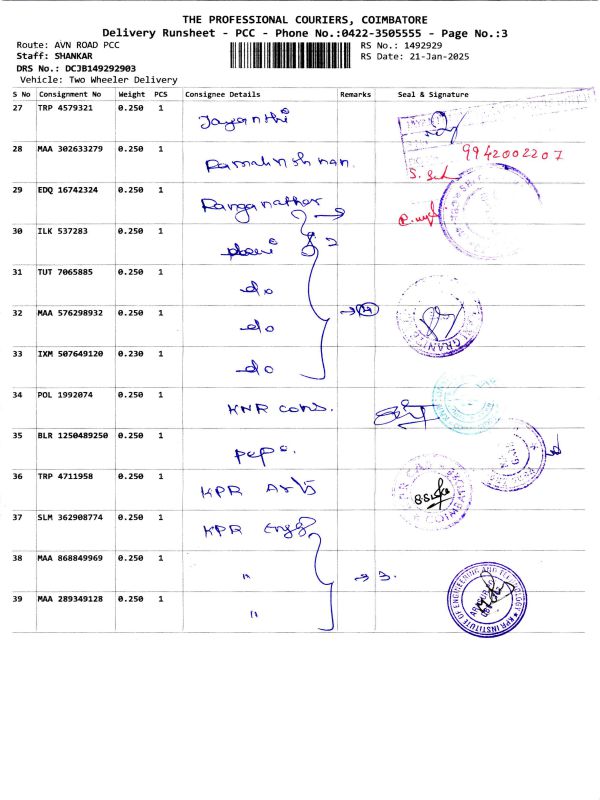 THE PROFESSIONAL COURIERS, COIMBATORE
Delivery Runsheet - PCC - Phone No.:0422-3505555 - Page No.:3
Route: AVN ROAD PCC RS No.: 1492929
Staff: SHANKAR RS Date: 21-Jan-2025
DRS No.: DCJB149292903
Vehicle: Two Wheeler Delivery
S No Consignment No Weight PCS Consignee Details Remarks Seal & Signature
27 TRP 4579321 0.250 1 Jayanthi
28 MAA 302633279 0.250 1 9942002207
29 EDQ 16742324 0.250 1 Ranganathar
30 ILK 537283 0.250 1
31 TUT 7065885 0.250 1 do
32 MAA 576298932 0.250 1 do
33 IXM 507649120 0.230 1 do
34 POL 1992074 0.250 1 KNR cons.
35 BLR 1250489250 0.250 1
36 TRP 4711958 0.250 1 KPR
37 SLM 362908774 0.250 1 KPR Engg
38 MAA 868849969 0.250 1 " 3.
39 MAA 289349128 0.250 1 " KPR INSTITUTE OF ENGINEERING AND TECHNOLOGY